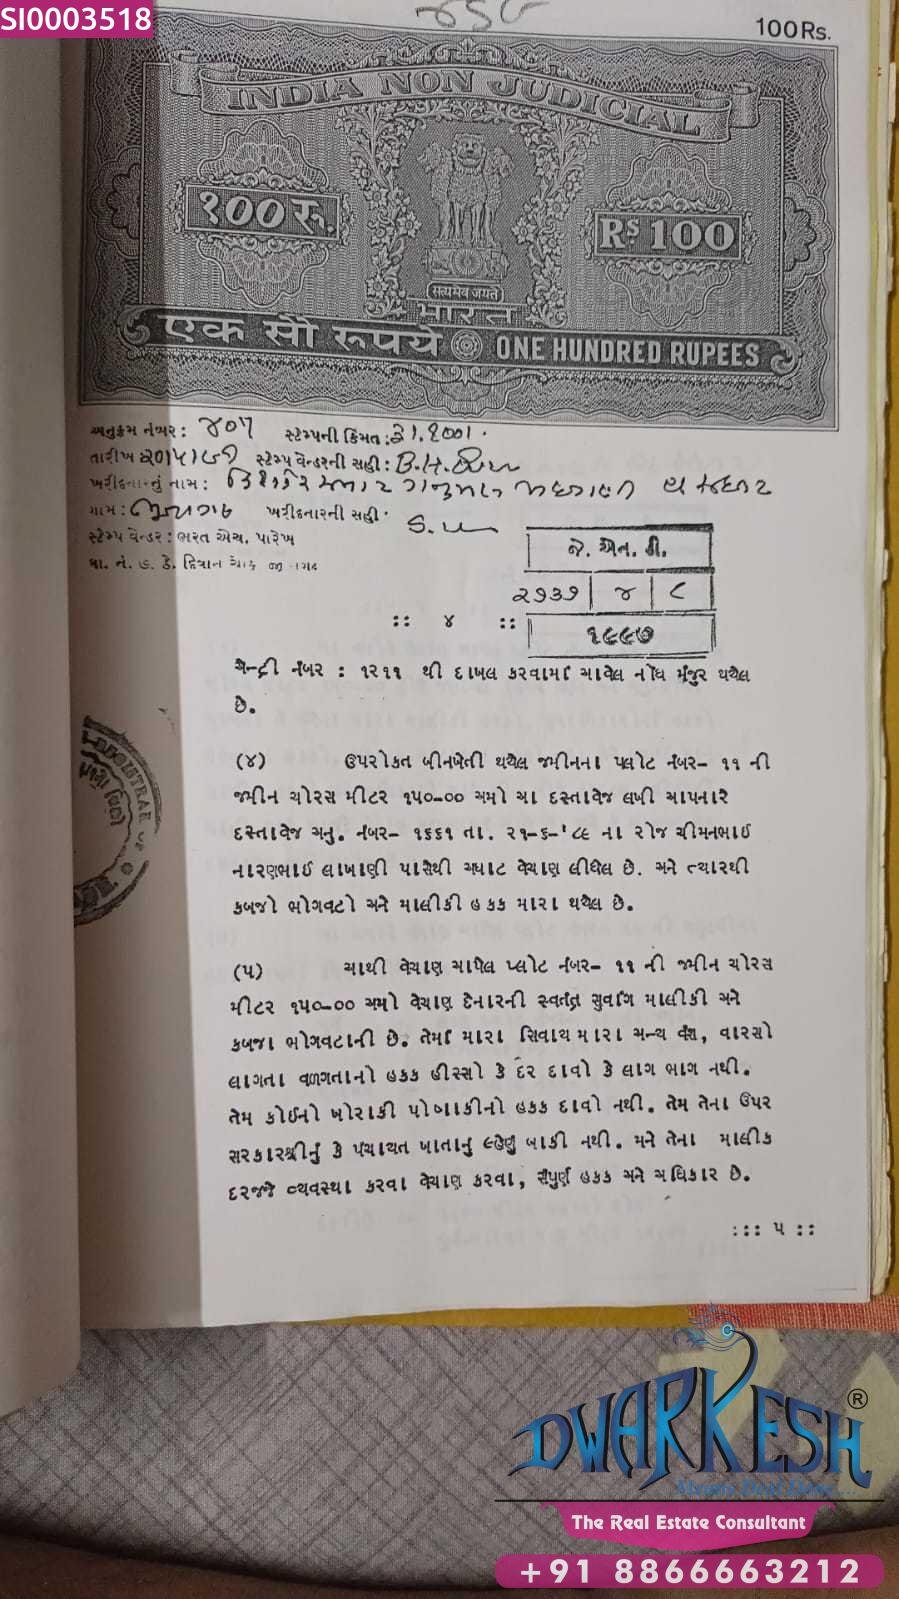 SI0003518
100 Rs.
INDIA NON JUDICIAL
१00 रु.
RS 100
सत्यमेव जयते
भारत
एक सौ रूपये ONE HUNDRED RUPEES
અનુક્રમ નંબર: ૪૦૫ સ્ટેમ્પની કિંમત:
તારીખ: સ્ટેમ્પ વેન્ડરની સહી:
ખરીદનારનું નામ:
ગામ: ખરીદનારની સહી
સ્ટેમ્પ વેન્ડર: ભરત એચ. પારેખ
જે. એન. ડી.
૨૭૩૭ ૪ ૮
:: ૪ ::
૧૯૯૭
એન્ટ્રી નંબર : ૧૨૧૧ થી દાખલ કરવામાં આવેલ નોંધ મંજુર થયેલ
છે.
(૪) ઉપરોકત બીનખેતી થયેલ જમીનના પ્લોટ નંબર- ૧૧ ની
જમીન ચોરસ મીટર ૧૫૦-૦૦ અમો આ દસ્તાવેજ લખી આપનારે
દસ્તાવેજ અનુ. નંબર- ૧૬૬૧ તા. ૨૧-૬-'૮૯ ના રોજ ચીમનભાઈ
નારણભાઈ લાખાણી પાસેથી અઘાટ વેચાણ લીધેલ છે. અને ત્યારથી
કબજો ભોગવટો અને માલીકી હકક મારા થયેલ છે.
(૫) આથી વેચાણ આપેલ પ્લોટ નંબર- ૧૧ ની જમીન ચોરસ
મીટર ૧૫૦-૦૦ અમો વેચાણ દેનારની સ્વતંત્ર સુવાંગ માલીકી અને
કબજા ભોગવટાની છે. તેમાં મારા સિવાય મારા અન્ય વંશ, વારસો
લાગતા વળગતાનો હકક હીસ્સો કે દર દાવો કે લાગ ભાગ નથી.
તેમ કોઈનો ખોરાકી પોષાકીનો હકક દાવો નથી. તેમ તેના ઉપર
સરકારશ્રીનું કે પંચાયત ખાતાનું લ્હેણું બાકી નથી. મને તેના માલીક
દરજજે વ્યવસ્થા કરવા વેચાણ કરવા, સંપુર્ણ હકક અને અધિકાર છે.
::: ૫ ::
DWARKESH ®
The Real Estate Consultant
+91 8866663212